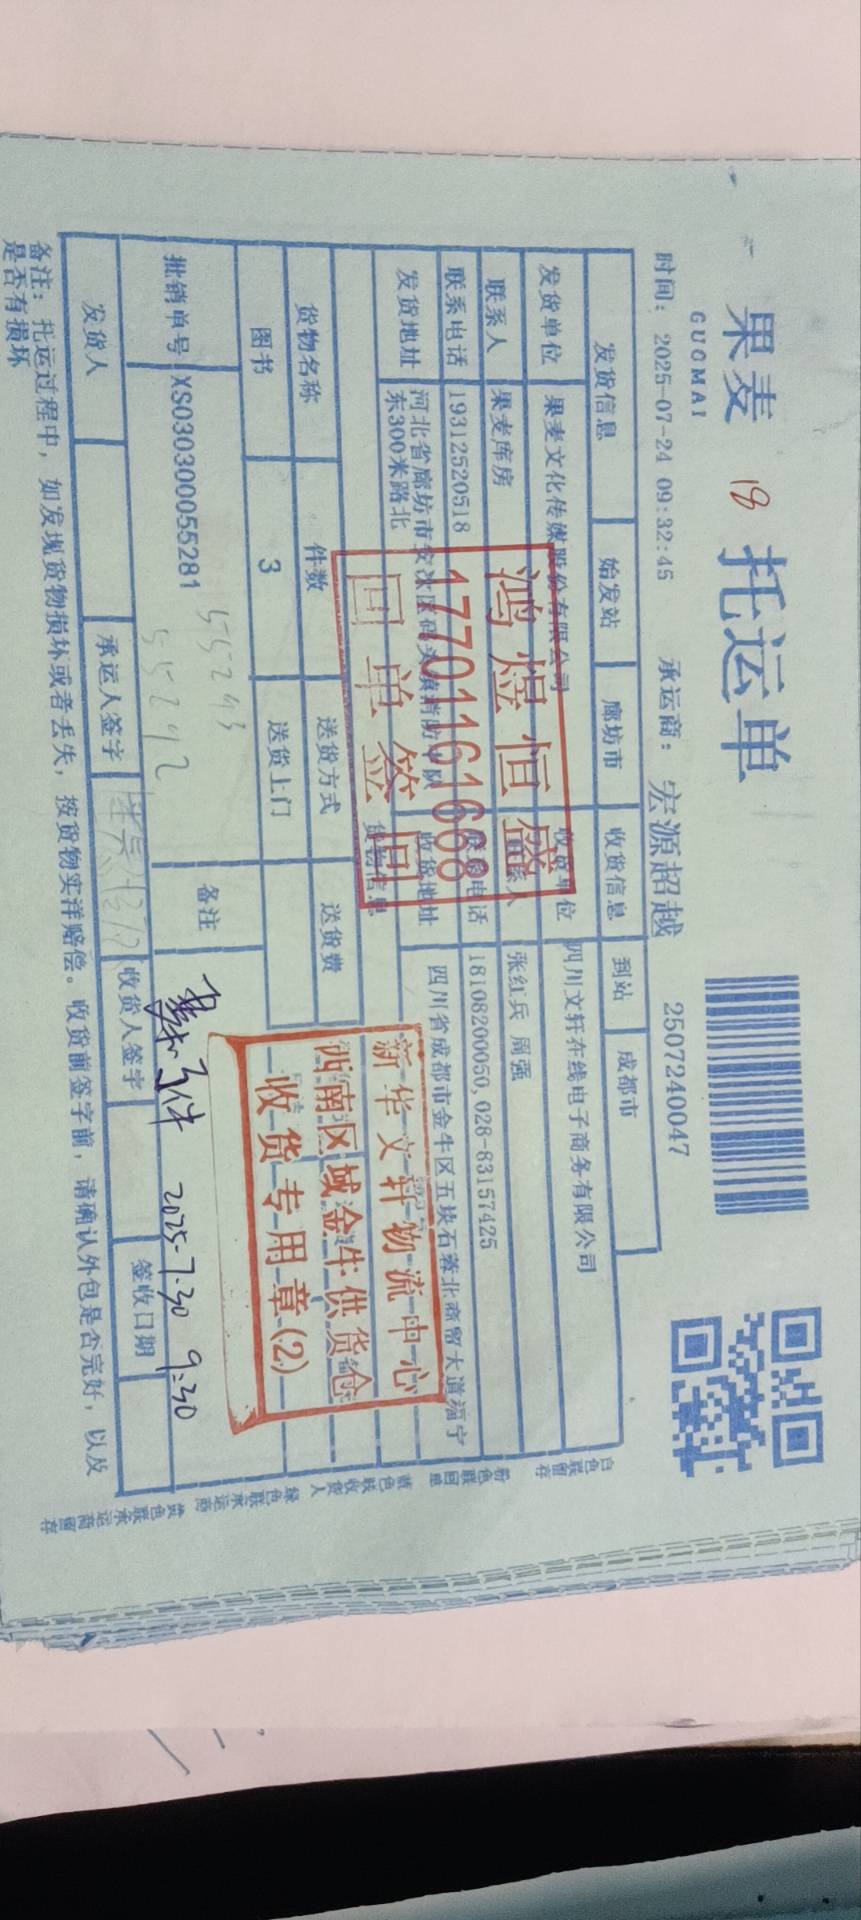 果麦
GUOMAI
18
托运单
2507240047
时间： 2025-07-24 09:32:45 承运商： 宏源超越
发货信息 始发站 廊坊市 收货信息 到站 成都市
发货单位 果麦文化传媒股份有限公司 收货单位 四川文轩在线电子商务有限公司
联系人 果麦库房 联系人 张红兵 周强
联系电话 19312520518 联系电话 18108200050,028-83157425
发货地址 河北省廊坊市安次区码头镇消防中队
东300米路北
收货地址 四川省成都市金牛区五块石蓉北商贸大道福宁
货物信息
货物名称 件数 送货方式 送货费
图书 3 送货上门
批销单号 XS030300055281 备注
555243
55242
件 2025-7-30 9:30
发货人 承运人签字 收货人签字 签收日期
备注： 托运过程中，如发现货物损坏或者丢失，按货物实洋赔偿。收货前签字前，请确认外包是否完好，以及
是否有损坏
鸿煜恒盛
17701161668
回单签回
新华文轩物流中心
西南区域金牛供货仓
收货专用章(2)
白色联留存
粉色联回应
绿色联承运商